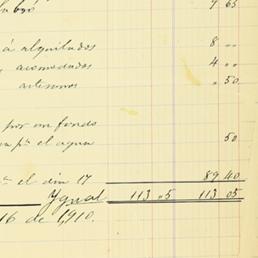 9 65
á alquilados 8 „
y acomodados 4 „
artesanos „ 50
por un fondo
pª el agua 50
el dia 17 89 40
Ygual 113 05 113 05
16 de 1,910.